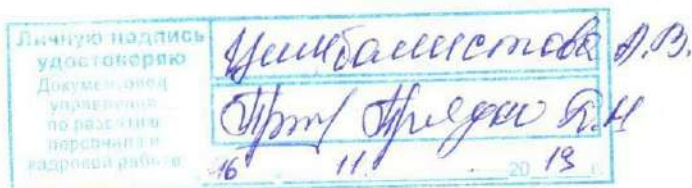 Личную подпись
удостоверяю
Документовед
управления
по развитию
персонала и
кадровой работе
Цимбалистова А.В.
Прядко Т.Н
16 11 2013 г.